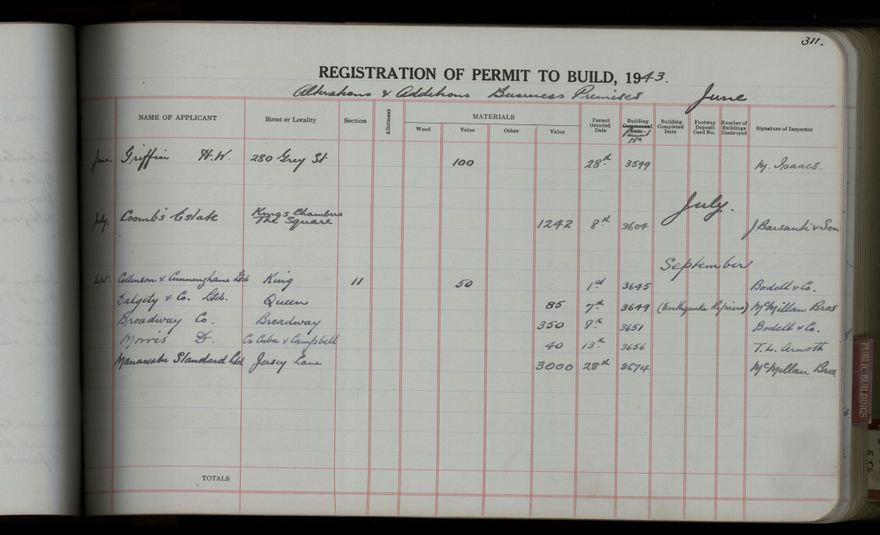 311.
REGISTRATION OF PERMIT TO BUILD, 1943.
Alterations & Additions Business Premises June
NAME OF APPLICANT Street or Locality Section Allotment MATERIALS Wood Value Other Value Permit Granted Date Building Permit No Building Completed Date Footway Deposit Card No. Number of Buildings Destroyed Signature of Inspector
June Griffin H.W. 280 Grey St 100 28th 3599 M. Isaacs.
July.
July. Coombs Estate Kings Chambers The Square 1242 8th 3604 J Barsanti & Son
September
Sept. Collinson & Cunninghame Ltd King 11 50 1st 3645 Bodell & Co.
Dalgety & Co. Ltd. Queen 85 7th 3649 (Earthquake Repairs) McMillan Bros
Broadway Co. Broadway 350 8th 3651 Bodell & Co.
Morris D. Co Cuba & Campbell 40 13th 3656 T.L.
Manawatu Standard Ltd Jersey Lane 3000 28th 3674 McMillan Bros
TOTALS
PUBLIC BUILDINGS
ETC